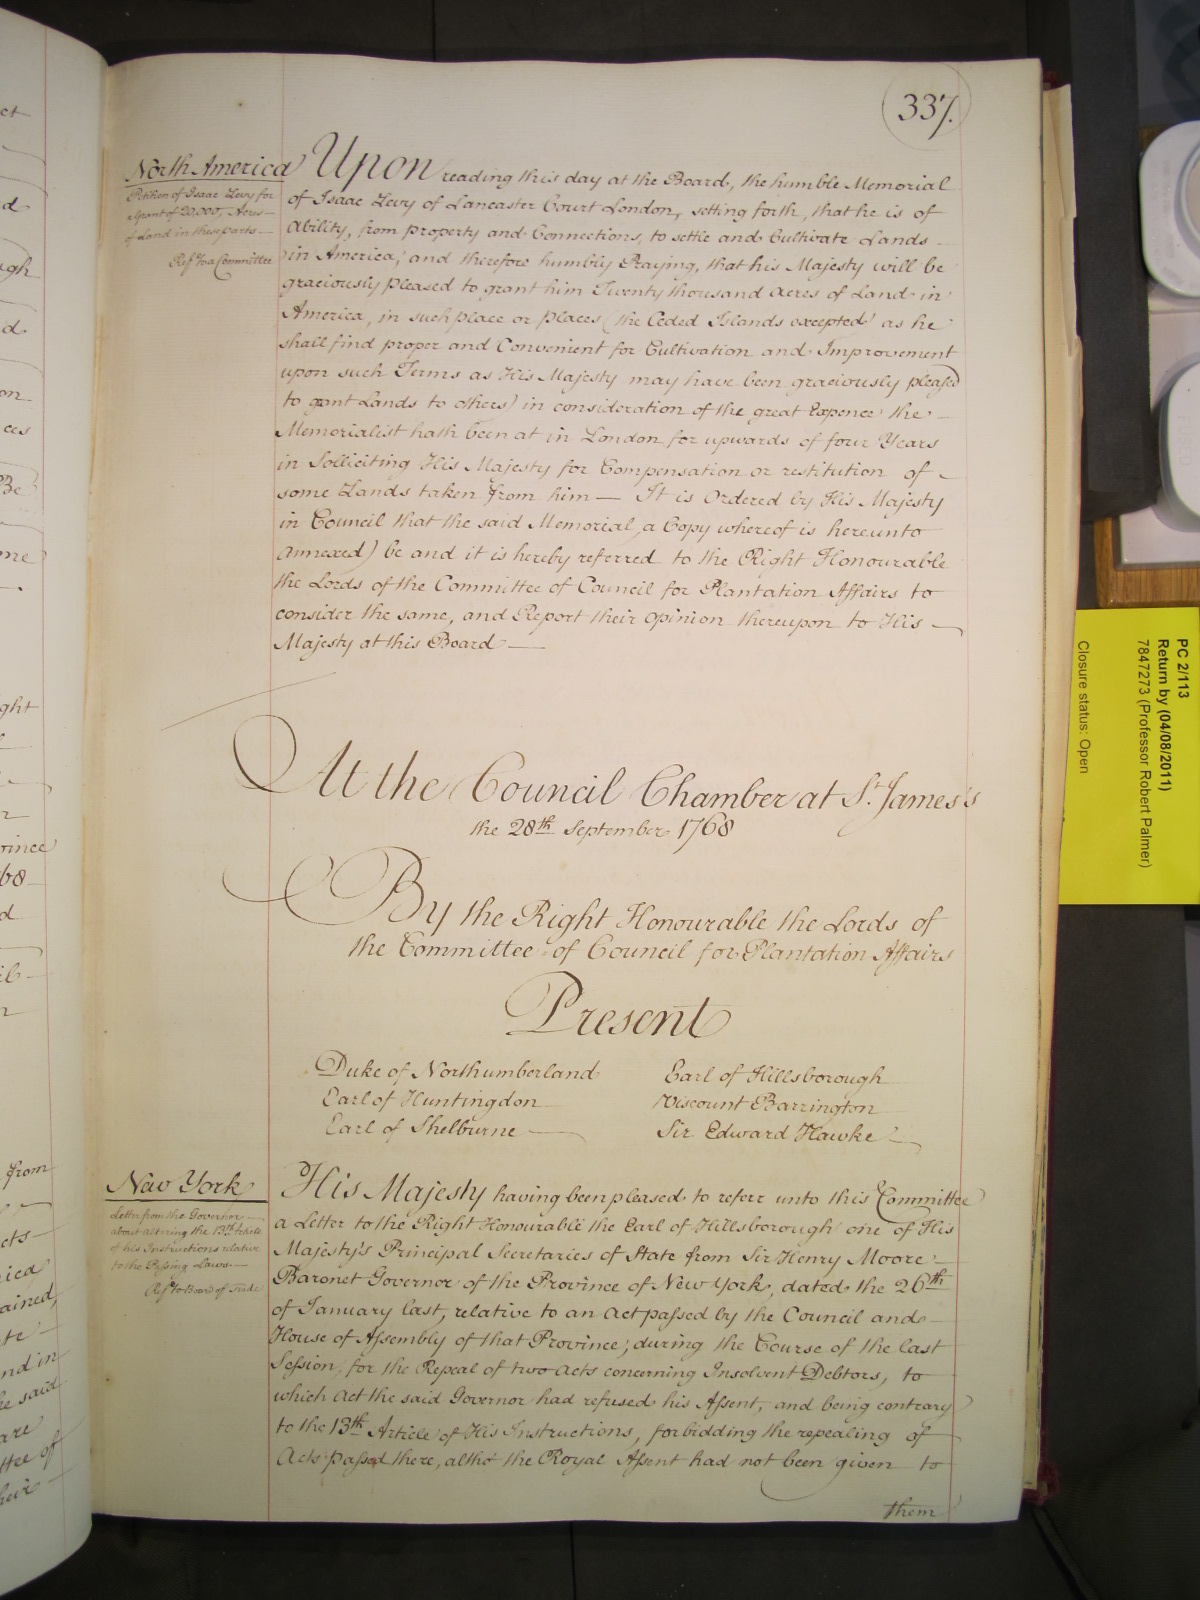 337.
North America
Petition of Isaac Levy for
a Grant of 20,000, Acres
of Land in these parts
Ref.d to a Committee
Upon reading this day at the Board, the humble Memorial
of Isaac Levy of Lancaster Court London, setting forth, that he is of
Ability, from property and Connections, to settle and Cultivate Lands
in America; and therefore humbly Praying, that his Majesty will be
graciously pleased to grant him Twenty thousand Acres of Land in
America, in such place or places (the Ceded Islands excepted) as he
shall find proper and Convenient for Cultivation and Improvement
upon such Terms as His Majesty may have been graciously pleased
to grant Lands to others) in consideration of the great Expence the
Memorialist hath been at in London for upwards of four Years
in Solliciting His Majesty for Compensation or restitution of
some Lands taken from him — It is Ordered by His Majesty
in Council that the said Memorial, a Copy whereof is hereunto
annexed) be and it is hereby referred to the Right Honourable
the Lords of the Committee of Council for Plantation Affairs to
consider the same, and Report their opinion thereupon to His
Majesty at this Board —
At the Council Chamber at St. James's
the 28th September 1768
By the Right Honourable the Lords of
the Committee of Council for Plantation Affairs
Present
Duke of Northumberland
Earl of Huntingdon
Earl of Shelburne
Earl of Hillsborough
Viscount Barrington
Sir Edward Hawke
New York
Letter from the Governor
about altering the 13th Article
of his Instructions relative
to the Passing Laws
Ref.d to Board of Trade
His Majesty having been pleased to referr unto this Committee
a Letter to the Right Honourable the Earl of Hillsborough one of His
Majesty's Principal Secretaries of State from Sir Henry Moore
Baronet Governor of the Province of New York, dated the 26th
of January last, relative to an Act passed by the Council and
House of Assembly of that Province, during the Course of the last
Session, for the Repeal of two Acts concerning Insolvent Debtors, to
which Act the said Governor had refused his Assent, and being contrary
to the 13th Article of His Instructions, forbidding the repealing of
Acts passed there, altho' the Royal Assent had not been given to
them
PC 2/113
Return by (04/08/2011)
7847273 (Professor Robert Palmer)
Closure status: Open